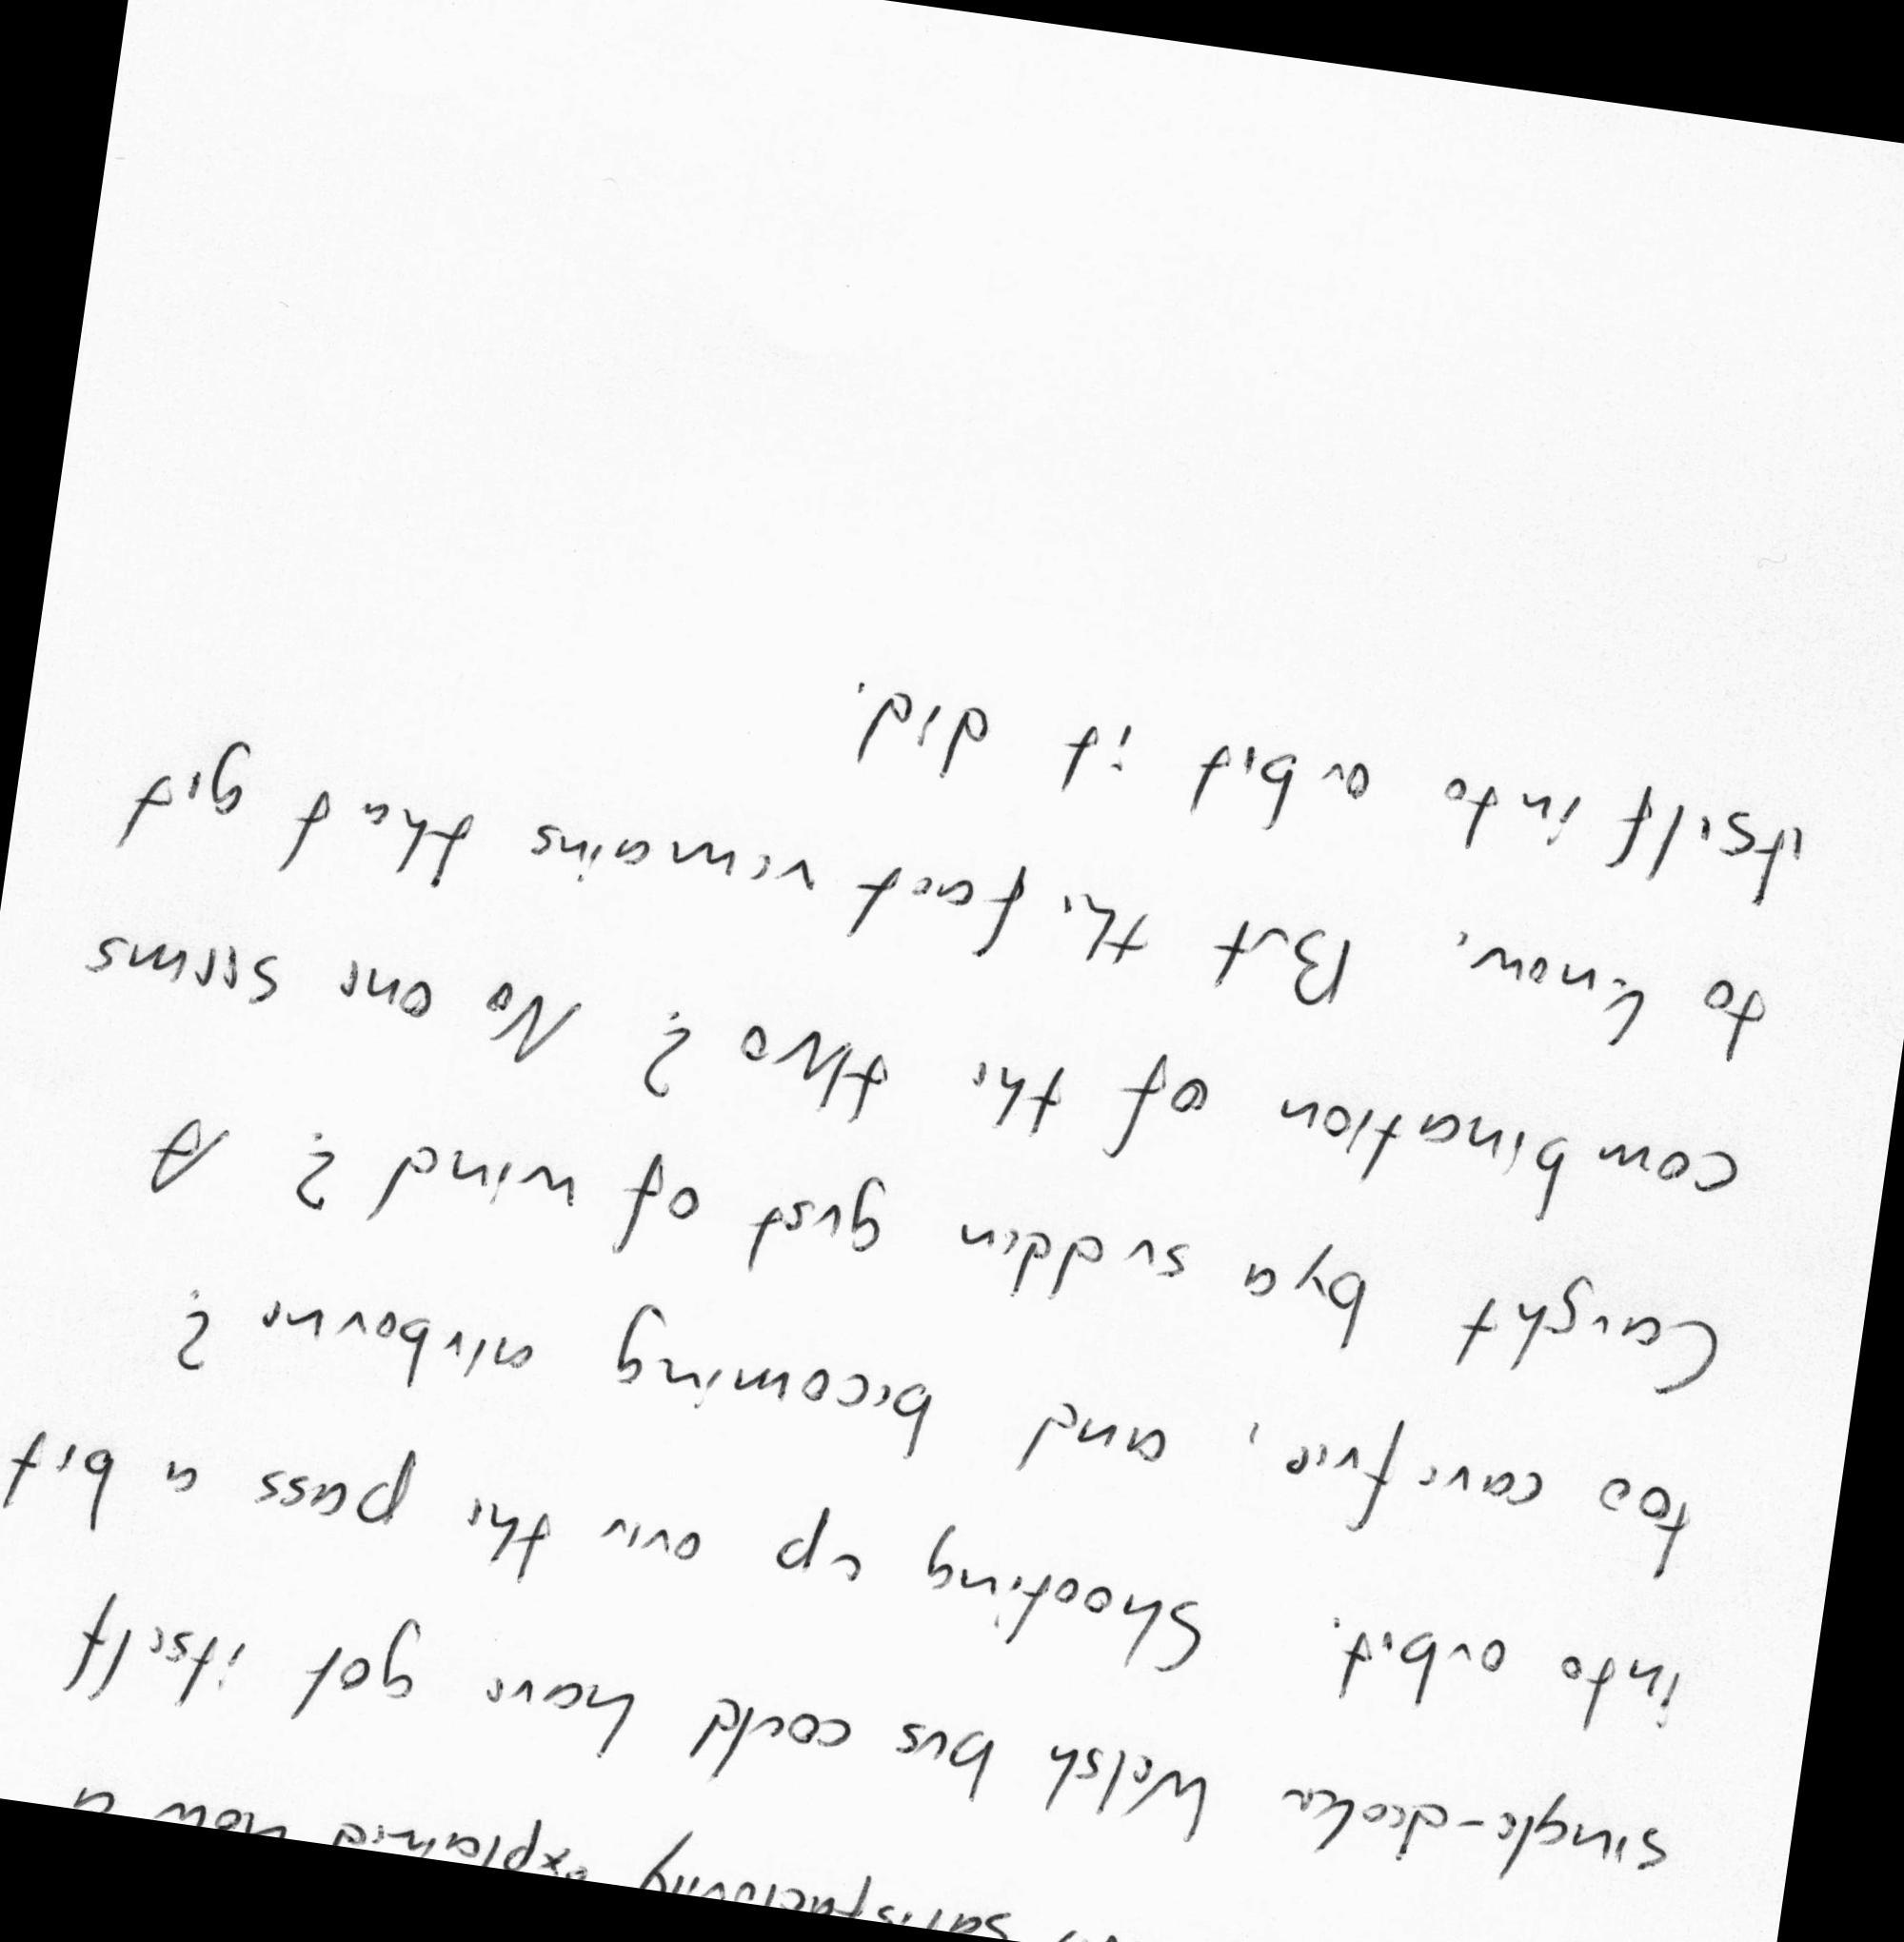 satisfactorily explained how a
single-decker Welsh bus could have got itself
into orbit. Shooting up over the pass a bit
too carefree, and becoming airborne?
Caught by a sudden gust of wind? A
combination of the two? No one seems
to know. But the fact remains that git
itself into orbit it did.